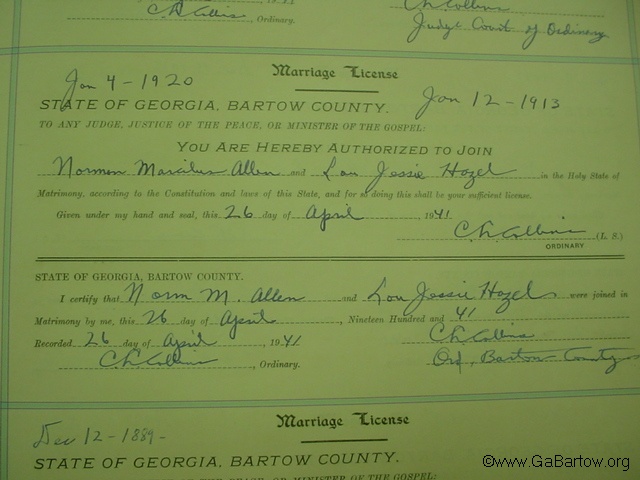 C.L. Collins
C.L. Collins , Ordinary.
Judge Court of Ordinary
Marriage License
Jan 4-1920
STATE OF GEORGIA, BARTOW COUNTY. Jan 12-1913
TO ANY JUDGE, JUSTICE OF THE PEACE, OR MINISTER OF THE GOSPEL:
YOU ARE HEREBY AUTHORIZED TO JOIN
Norman Marcilus Allen and Lou Jessie Hazel in the Holy State of
Matrimony, according to the Constitution and laws of this State, and for so doing this shall be your sufficient license.
Given under my hand and seal, this 26 day of April 1941
C.L. Collins (L. S.)
ORDINARY
STATE OF GEORGIA, BARTOW COUNTY.
I certify that Norm M. Allen and Lou Jessie Hazel were joined in
Matrimony by me, this 26 day of April , Nineteen Hundred and 41
Recorded 26 day of April , 1941 C.L. Collins
C.L. Collins , Ordinary. Ord. Bartow County
Marriage License
Dec 12-1889-
STATE OF GEORGIA, BARTOW COUNTY.
OR MINISTER OF THE GOSPEL:
©www.GaBartow.org